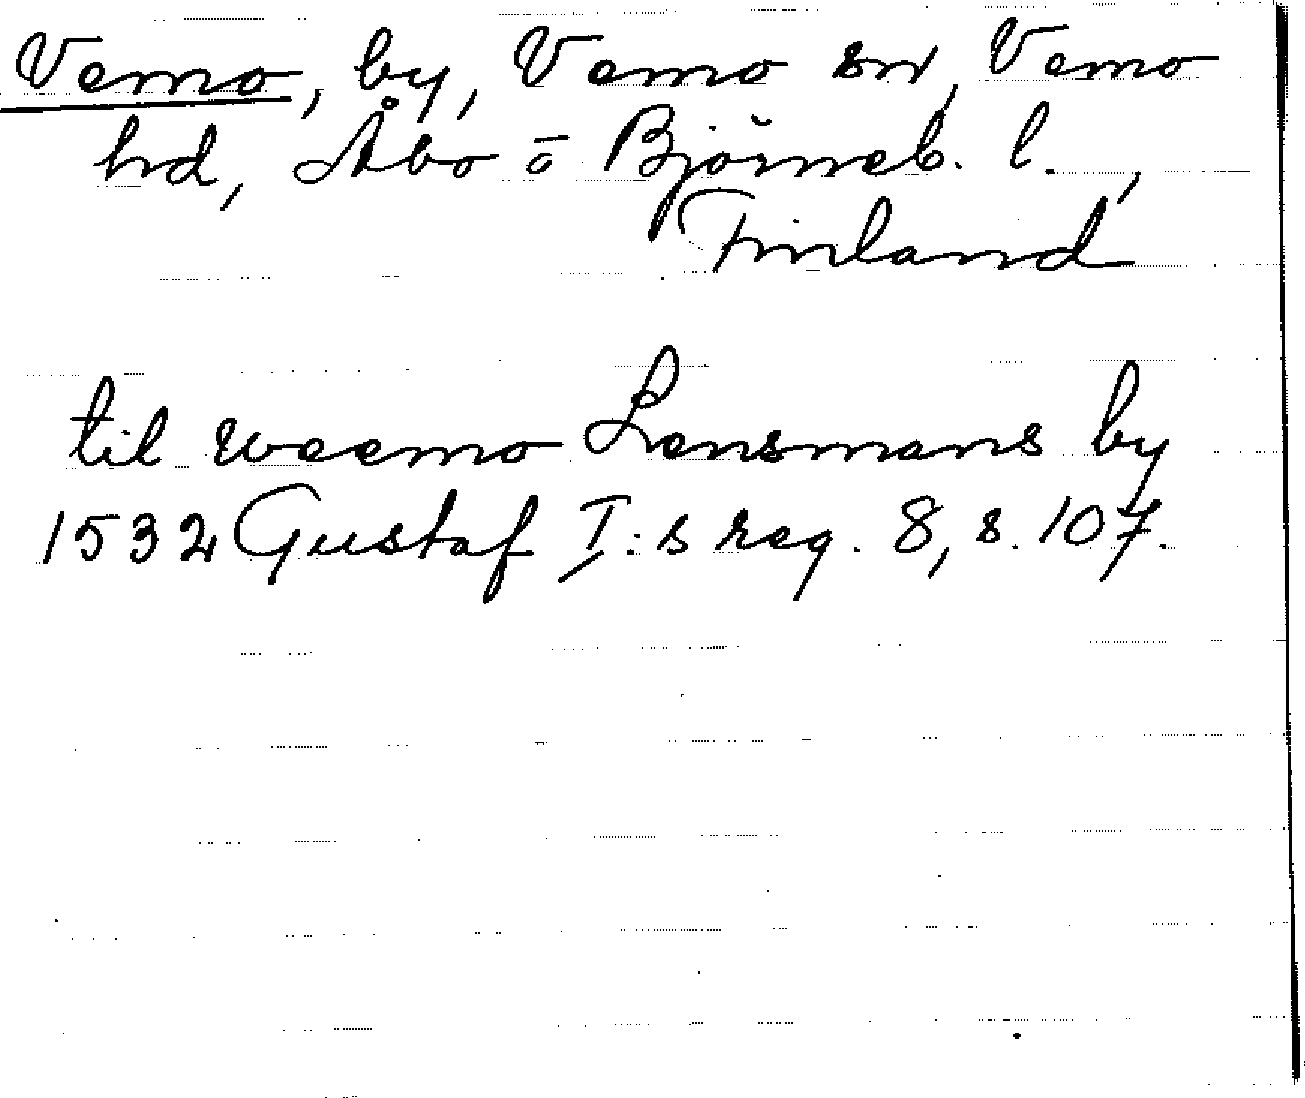 Vemo, by, Vemo sn, Vemo
hd, Åbo o Björneb. l.,
Finland
til weemo Lensmans by
1532 Gustaf I:s reg. 8, s. 107.